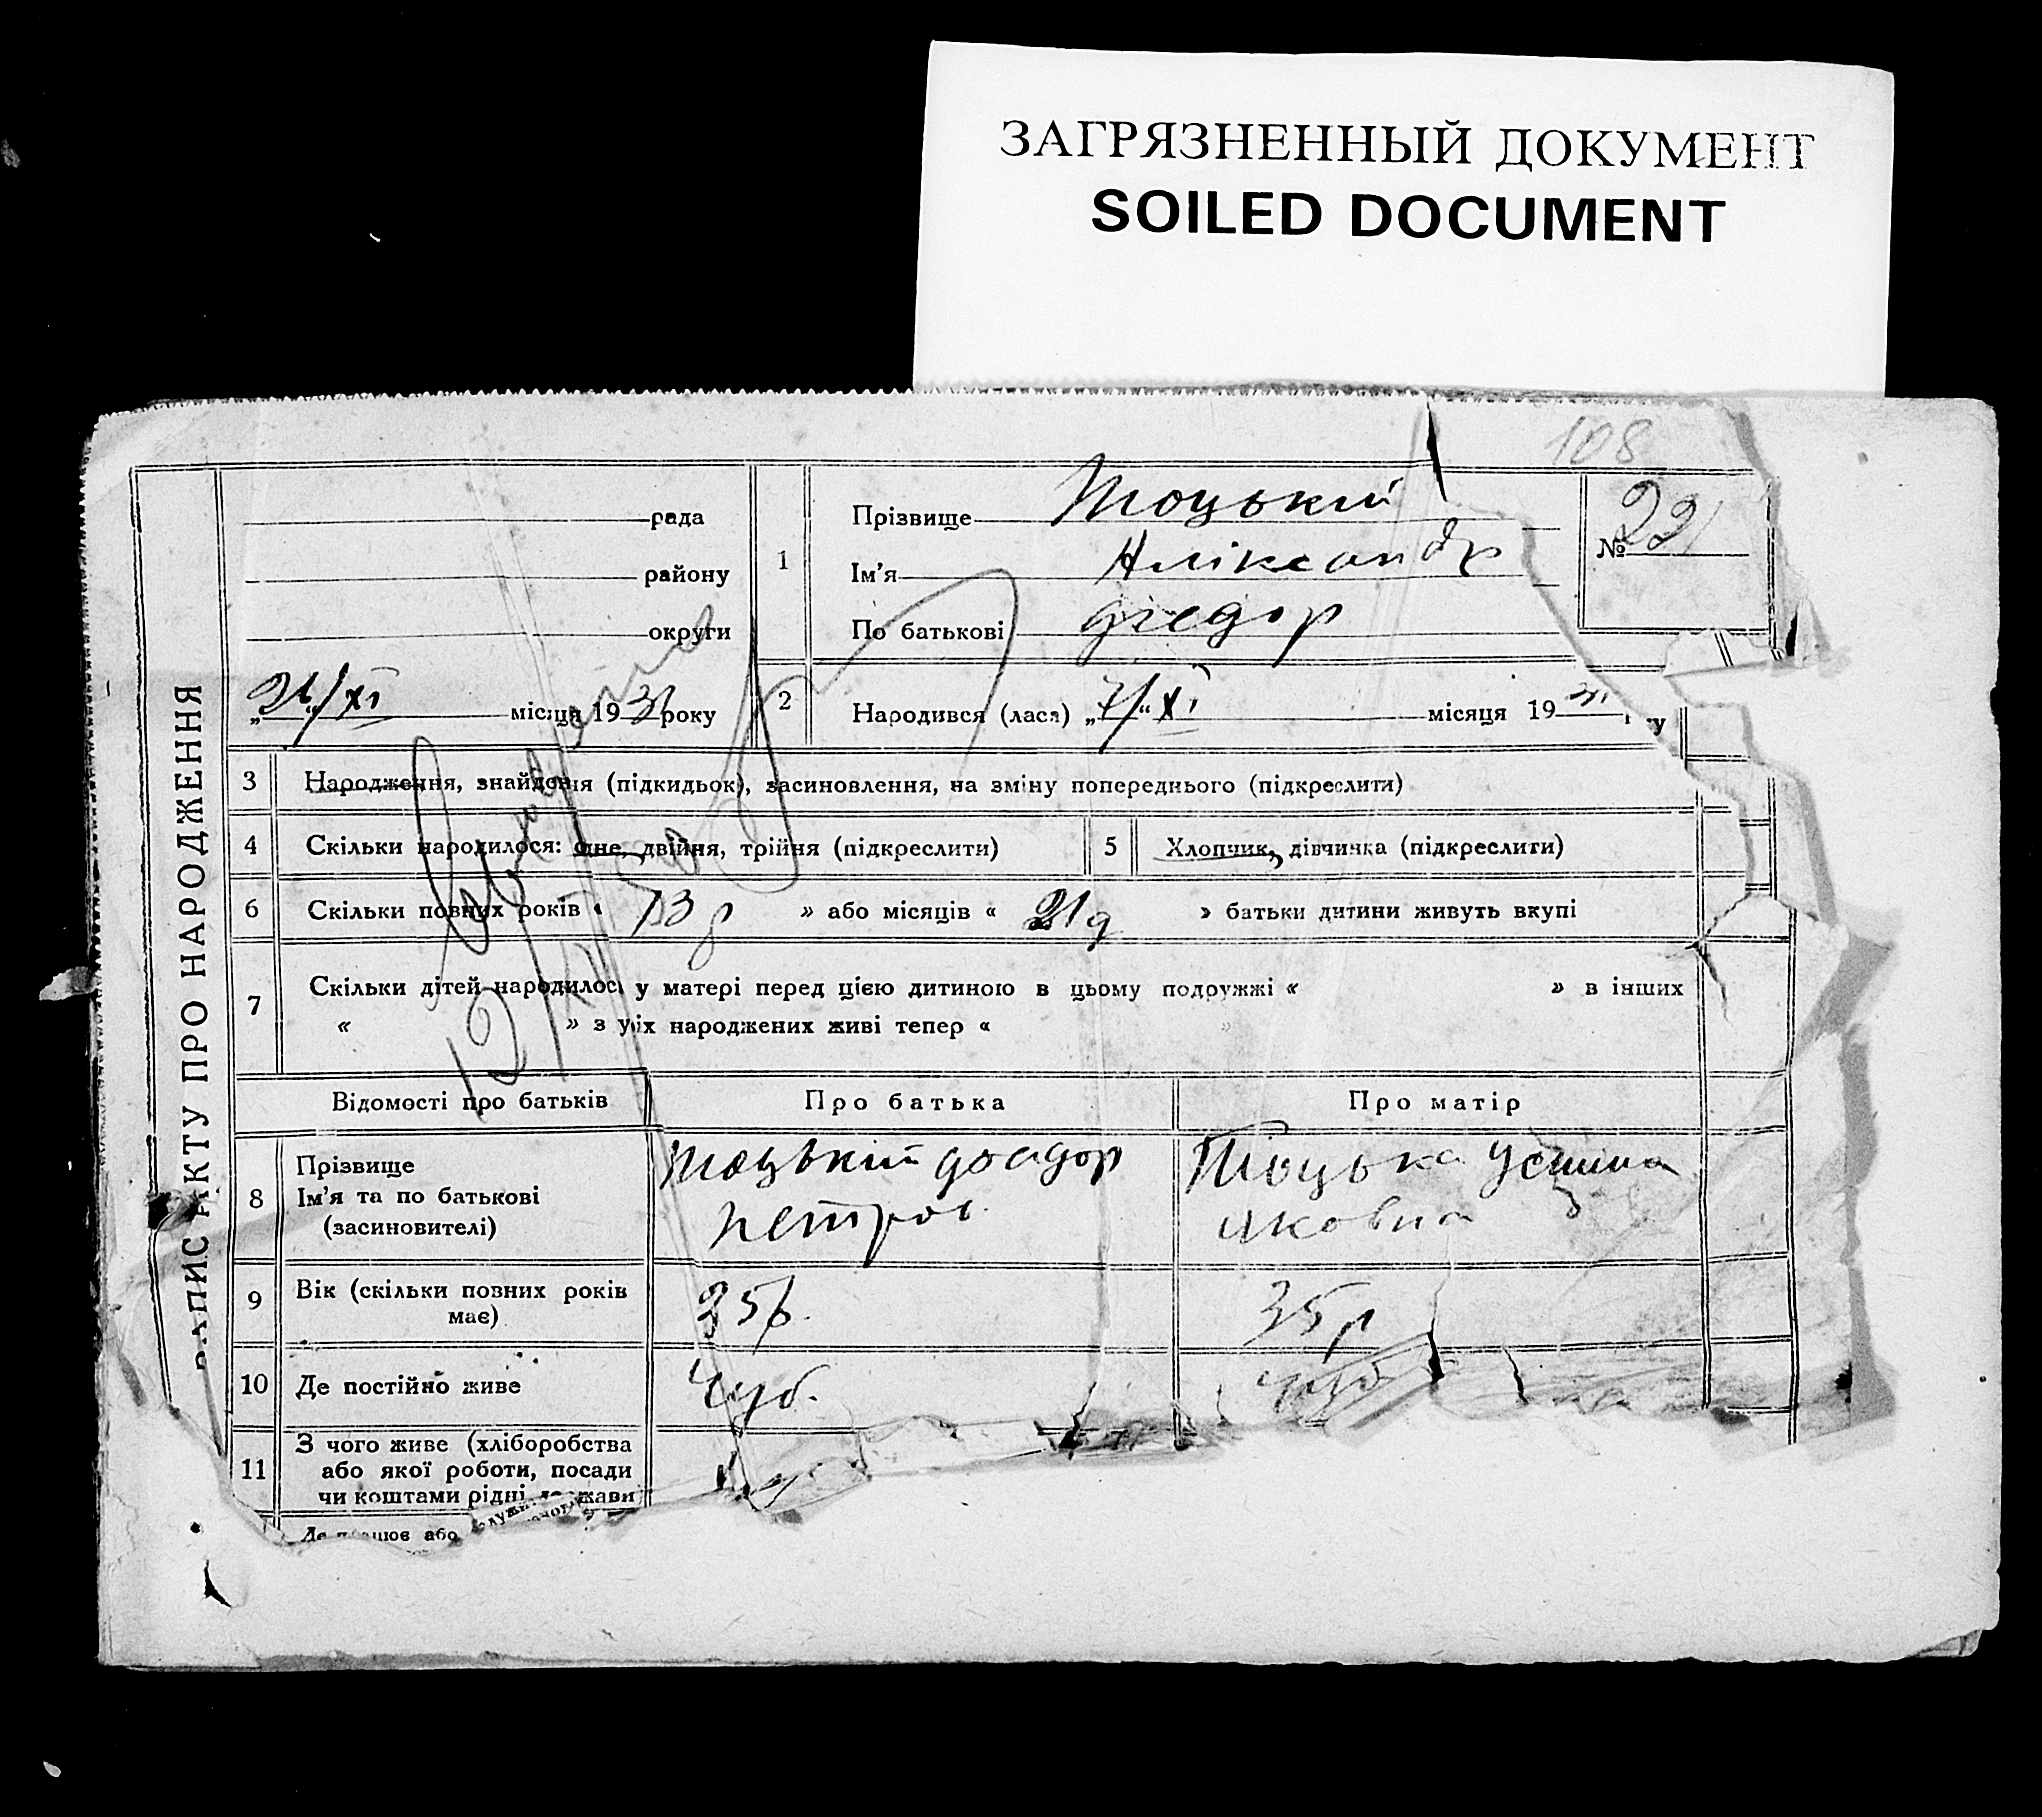 ЗАГРЯЗНЕННЫЙ ДОКУМЕНТ
SOILED DOCUMENT
108
АКТУ ПРО НАРОДЖЕННЯ
рада
району
округи
місяця 1931 року
1
Прізвище Тоцький
Ім'я Аліксандр
По батькові
№ 221
2
Народився (лася) „7/“ XI місяця 1931
3 Народження, знайдення (підкидьок), засиновлення, на зміну попереднього (підкреслити)
4 Скільки народилося: одне, двійня, трійня (підкреслити)
5 Хлопчик, дівчинка (підкреслити)
6 Скільки повних років « 13 р » або місяців « » батьки дитини живуть вкупі
7 Скільки дітей народилось у матері перед цією дитиною в цьому подружжі « » в інших
« » з усіх народжених живі тепер « »
Відомості про батьків
Про батька
Про матір
8
Прізвище
Ім'я та по батькові
(засиновителі)
Тоцький
Петров.
Тоцька Устина
Яковна
9
Вік (скільки повних років
має)
35р.
35р
10 Де постійно живе
Чуб.
11
З чого живе (хліборобства
або якої роботи, посади
чи коштами рідні, держави
або